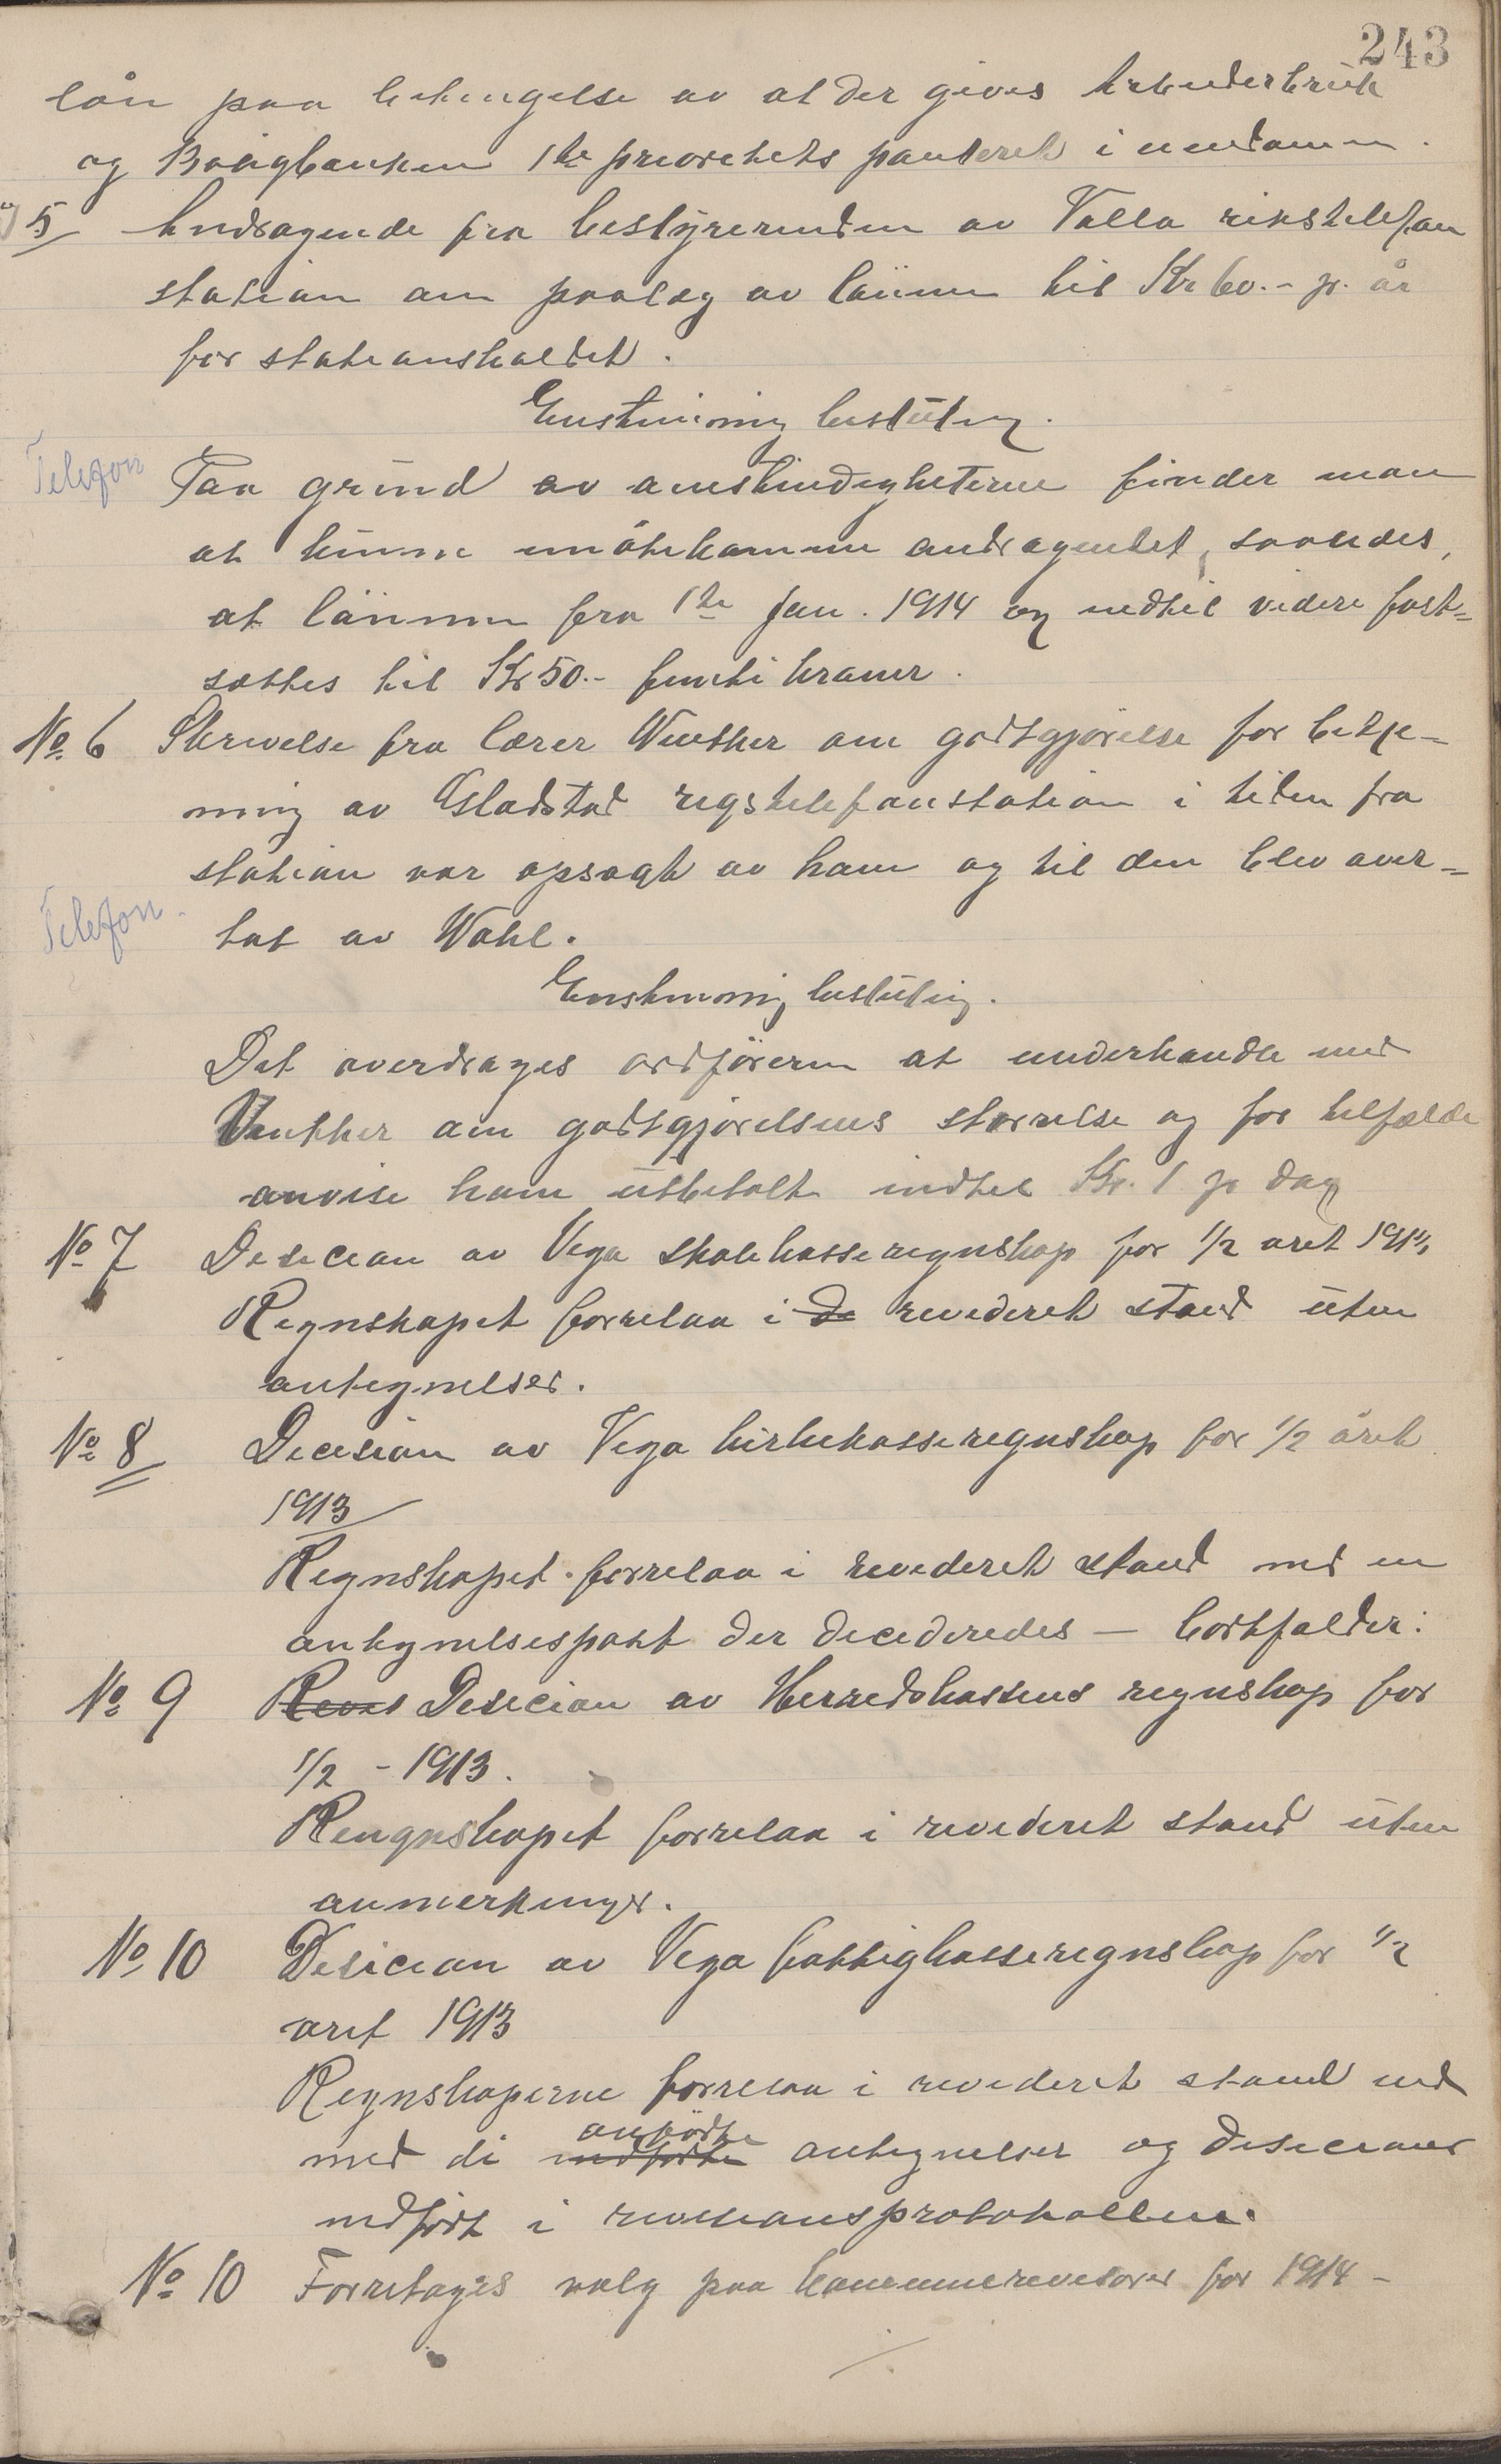 243
lån paa betingelse av at der gives Arbeiderbruk
og Boligbanken 1te prioritets panteret i eiendommen.
5 Andragende fra bestyrerinden av Valla rikstelefon
station om paalæg av lönnen til Kr 60.- pr. år
for stationsholdet.
Enstemmig beslutning.
Telefon
Paa grund av omstendigheterne finder man
at kunne imötekomme andragendet, saaledes,
at lönnen fra 1te Jan. 1914 og indtil videre fast-
sættes til Kr 50.- femti kroner.
No. 6 Skrivelse fra lærer Winther om godtgjörelse for betje-
ning av Gladstad rigstelefonstation i tiden fra
station var opsagt av ham og til den blev over-
Telefon.
tat av Wahl.
Enstemmig beslutning.
Det overdrages ordföreren at underhandle med
Winther om godtgjörelsens størrelse og for tilfælde
anvise ham utbetalt indtil Kr. 1 pr dag
No 7 Desicion av Vega skolekasseregnskap for 1/2 aret 191
Regnskapet forrelaa i de revideret stand uten
antegnelser.
No 8 Decision av Vega kirkekasseregnskap for 1/2 året
1913
Regnskapet forrelaa i revideret stand med en
antegnelsespost der decideredes — bortfalder.
No 9 Revis Desicion av Herredskassens regnskap for
1/2 - 1913.
Rengnskapet forrelaa i revideret stand uten
anmerkninger.
No 10 Desicion av Vega fattigkasseregnskap for 1/2
aret 1913
Regnskaperne forrelaa i revideret stand med
anförte
med de indförte antegnelser og desicioner
indfört i revisionsprotokollen.
No 10 Forretages valg paa kommunerevisorer for 1914 -